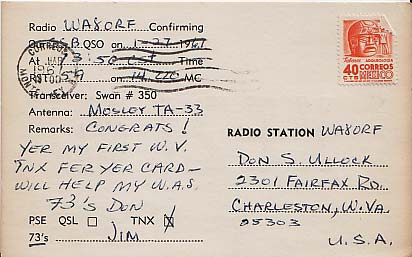 Radio WA8ORF Confirming
QSO on 1-27-1967
At 13:50 CST Time
RS 59 on 14.220 MC
Transceiver: Swan # 350
Antenna: MOSLEY TA-33
Remarks: CONGRATS!
YER MY FIRST W.V.
TNX FER YER CARD-
WILL HELP MY W.A.S.
73'S DON
PSE QSL TNX
73's JIM
CORREOS
MONTERREY
Tabasco ARQUEOLOGIA
40 CORREOS
CTS MEXICO
RADIO STATION WA8ORF
DON S. ULLOCK
2301 FAIRFAX RD.
CHARLESTON, W.VA.
25303
U.S.A.